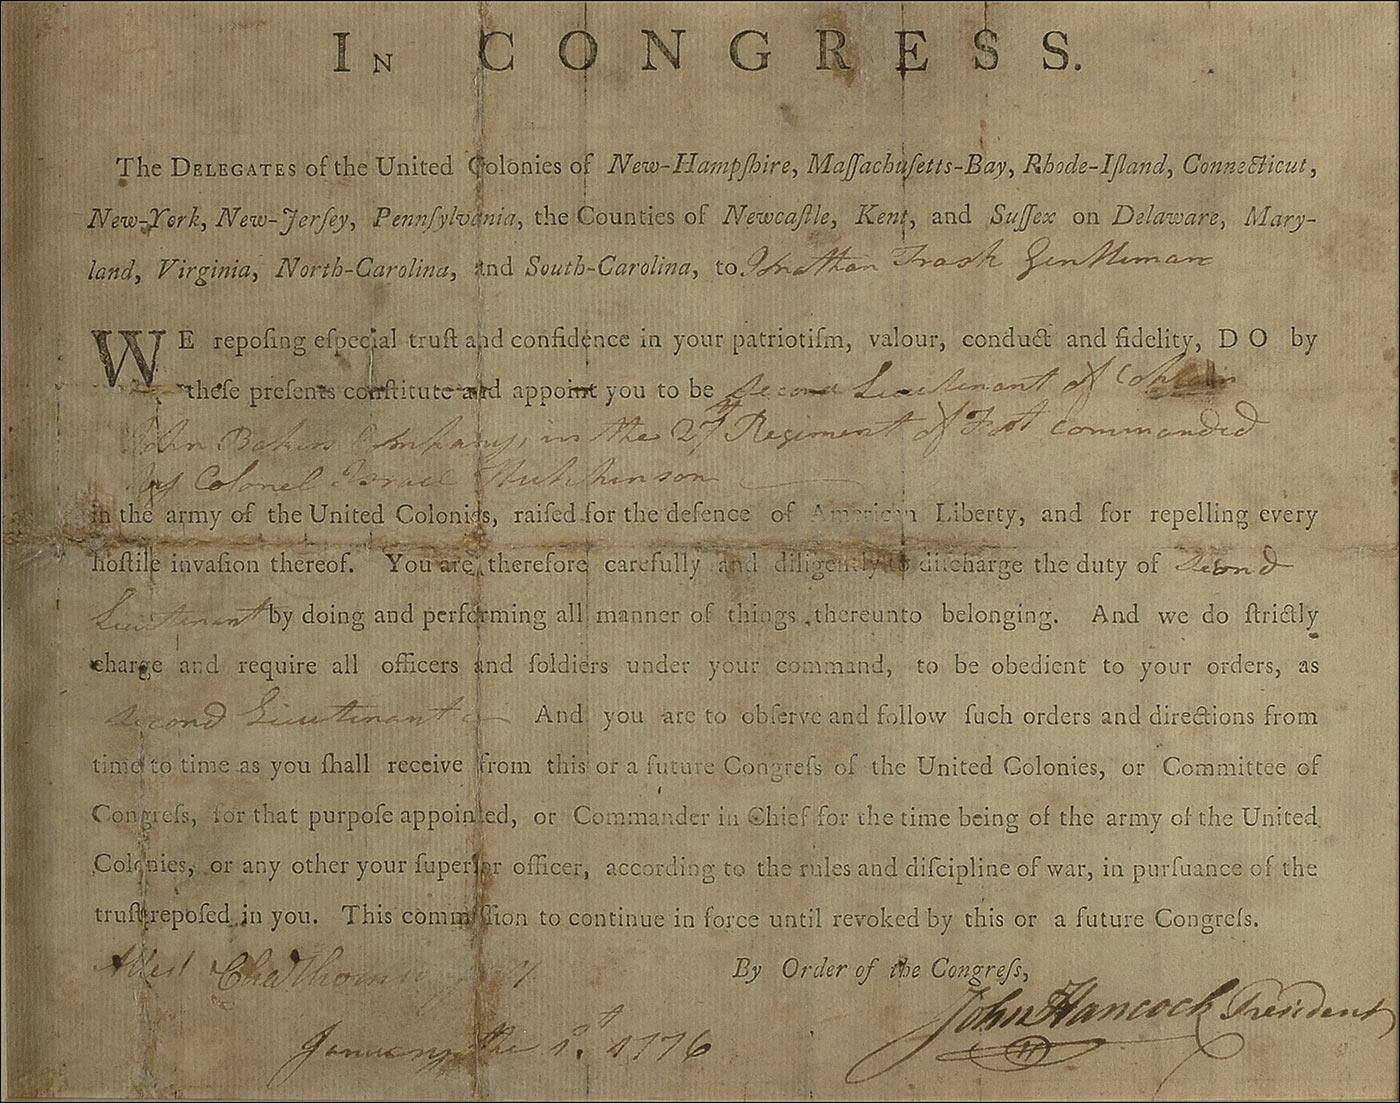 In CONGRESS.
The DELEGATES of the United Colonies of New-Hampſhire, Maſſachuſetts-Bay, Rhode-Iſland, Connecticut,
New-York, New-Jerſey, Pennſylvania, the Counties of Newcaſtle, Kent, and Suſſex on Delaware, Mary-
land, Virginia, North-Carolina, and South-Carolina, to Jonathan Trask Gentleman
WE repoſing eſpecial truſt and confidence in your patriotiſm, valour, conduct and fidelity, DO by
theſe preſents conſtitute and appoint you to be Second Lieutenant of Captain
John Bakers Company, in the 27th Regiment of Foot commanded
by Colonel Israel Hutchinson
in the army of the United Colonies, raiſed for the defence of American Liberty, and for repelling every
hoſtile invaſion thereof. You are therefore carefully and diligently to diſcharge the duty of Second
Lieutenant by doing and performing all manner of things thereunto belonging. And we do ſtrictly
charge and require all officers and ſoldiers under your command, to be obedient to your orders, as
Second Lieutenant And you are to obſerve and follow ſuch orders and directions from
time to time as you ſhall receive from this or a future Congreſs of the United Colonies, or Committee of
Congreſs, for that purpoſe appointed, or Commander in Chief for the time being of the army of the United
Colonies, or any other your ſuperior officer, according to the rules and diſcipline of war, in purſuance of the
truſt repoſed in you. This commiſſion to continue in force until revoked by this or a future Congreſs.
By Order of the Congreſs,
Attest Chas Thomson
John Hancock President
January the 1st. 1776